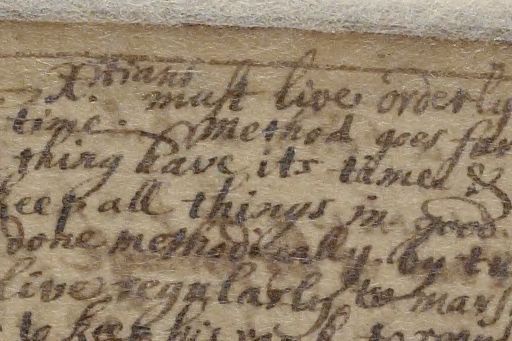 Xtians must live orderly
time. Method goes far
thing have its time &
keep all things in good
done methodically. by tu
live regularly to mars
to keep his work